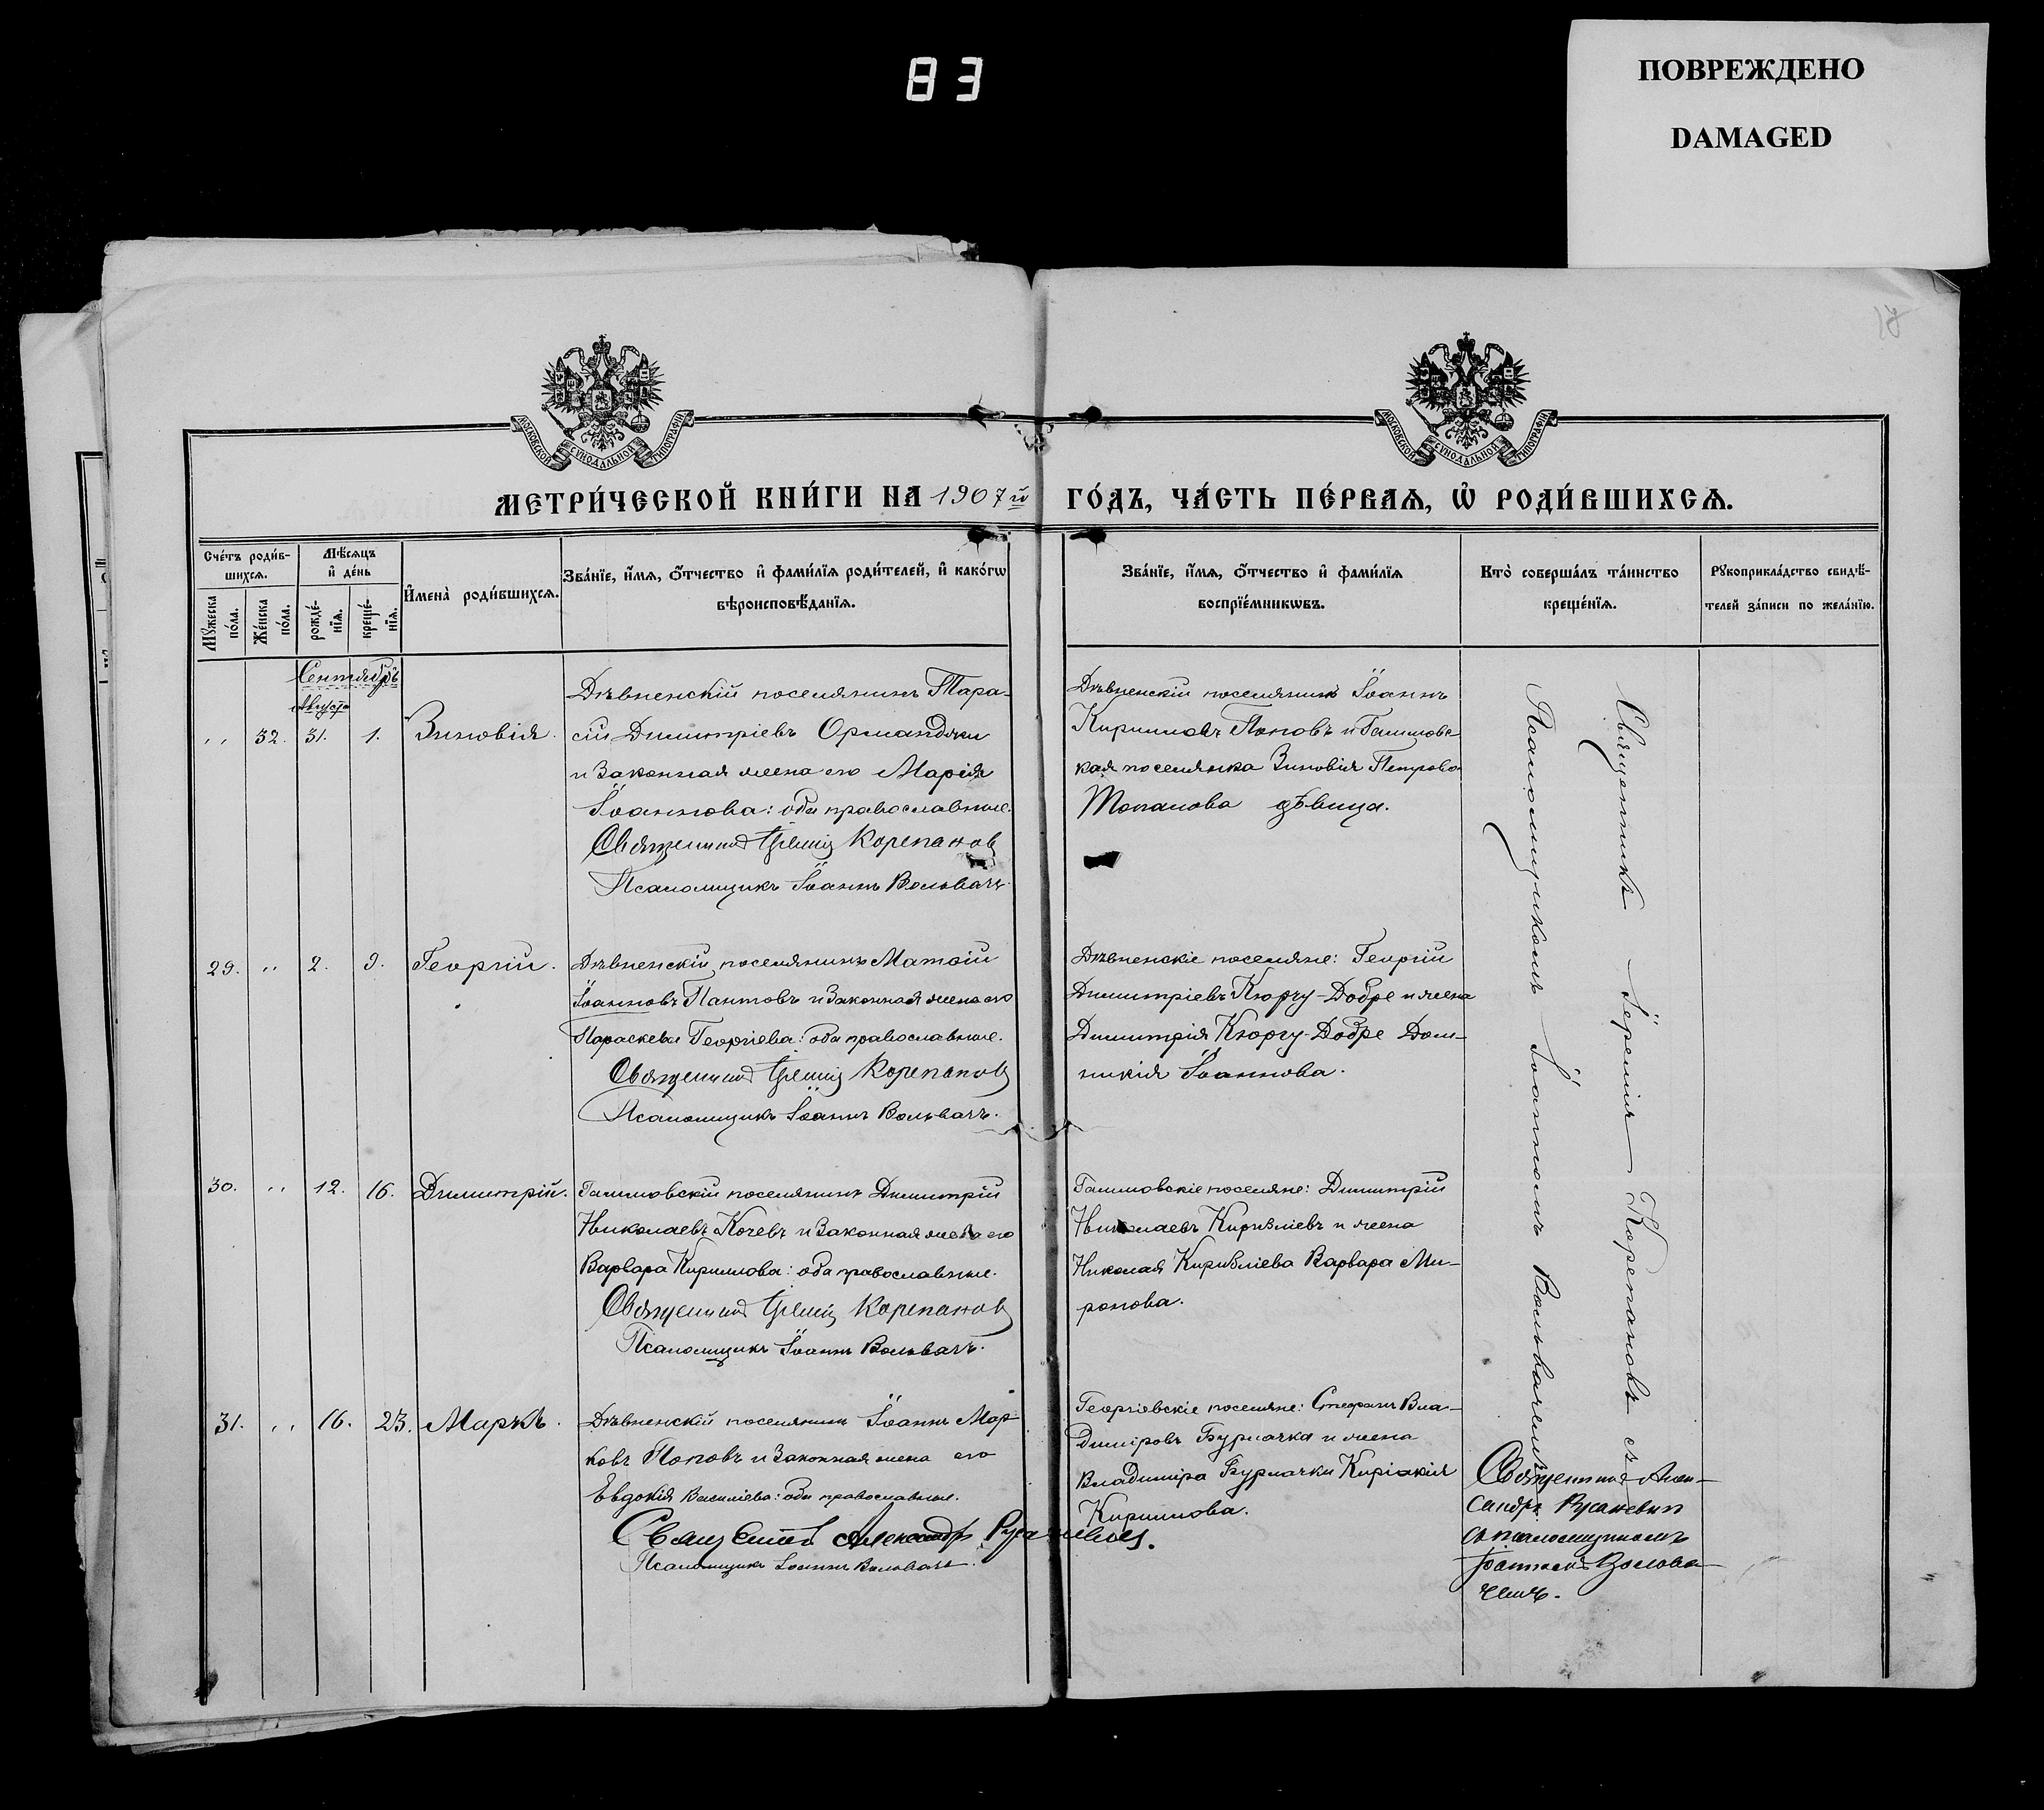 83
ПОВРЕЖДЕНО
DAMAGED
МОСКОВСКОЙ СУНОДАЛЬНОЙ ТИПОГРАФІИ
МОСКОВСКОЙ СУНОДАЛЬНОЙ ТИПОГРАФІИ
МЕТРИ́ЧЕСКОЙ КНИ́ГИ НА 1907й ГО́ДЪ, ЧА́СТЬ ПЕ́РВАѦ, Ѡ҆ РОДИ́ВШИХСѦ.
Сче́тъ роди́в-
шихсѧ.
Мꙋ́жеска
по́ла.
Же́нска
по́ла.
Мѣ́сѧцъ
и҆ де́нь
рожде́-
нїѧ.
креще́-
нїѧ.
И҆мена̀ роди́вшихсѧ.
Зва́нїе, и҆́мѧ, ѻ҆́тчество и҆ фами́лїѧ роди́телей, и҆ како́гѡ
вѣроисповѣ́данїѧ.
Зва́нїе, и҆́мѧ, ѻ҆́тчество и҆ фами́лїѧ
воспрїе́мникѡвъ.
Кто̀ соверша́лъ та́инство
креще́нїѧ.
Рꙋкоприкла́дство свидѣ́-
телей за́писи по жела́нїю.
Сентябрь
августа
,, 32. 31. 1. Зиновія.
Дѣвненскій поселянинъ Тара-
сій Димитріевъ Орманджи
и Законная жена его Марія
Іоаннова: оба православные.
Священник Іереміѧ Корепанов
Псаломщикъ Іоаннъ Вольвачъ.
Дѣвненскій поселянинъ Іоаннъ
Кирилловъ Поповъ и Гаммовс
кая поселянка Зиновія Петрова
Топалова дѣвица.
29. ,, 2. 9. Георгій.
Дѣвненскій поселянинъ Матѳій
Іоанновъ Пантовъ и Законная жена его
Параскева Георгіева: оба православные.
Священник Іереміѧ Корепанов
Псаломщикъ Іоаннъ Вольвачъ.
Дѣвненскіе поселяне: Георгій
Димитріевъ Кюрчу-Добре и жена
Димитрія Кюрчу-Добре Дом-
никія Іоаннова.
30. ,, 12. 16. Димитрій.
Гаммовскій поселянинъ Димитрій
Николаевъ Кочевъ и Законная жена его
Варвара Кириллова: оба православные.
Священник Іереміѧ Корепанов
Псаломщикъ Іоаннъ Вольвачъ.
Гаммовскіе поселяне: Димитрій
Николаевъ и жена
Николая Варвара Ми-
ронова.
31. ,, 16. 23. Маркъ.
Дѣвненскій поселянинъ Іоаннъ Мар
ковъ Поповъ и Законная жена его
Евдокія Василіева: оба православные.
Священник Александръ Русаневич.
Псаломщикъ Іоаннъ Вольвачъ.
Георгіевскіе поселяне: Стефанъ Вла-
диміровъ Бурлачка и жена
Владиміра Бурлачки Киріакія
Кириллова.
Священникъ Іеремія Корепановъ съ
Псаломщикомъ Іоанномъ Вольвачемъ
Священник Алек-
сандръ Русаневич
съ псаломщикомъ
Іоанномъ Волова-
чемъ.